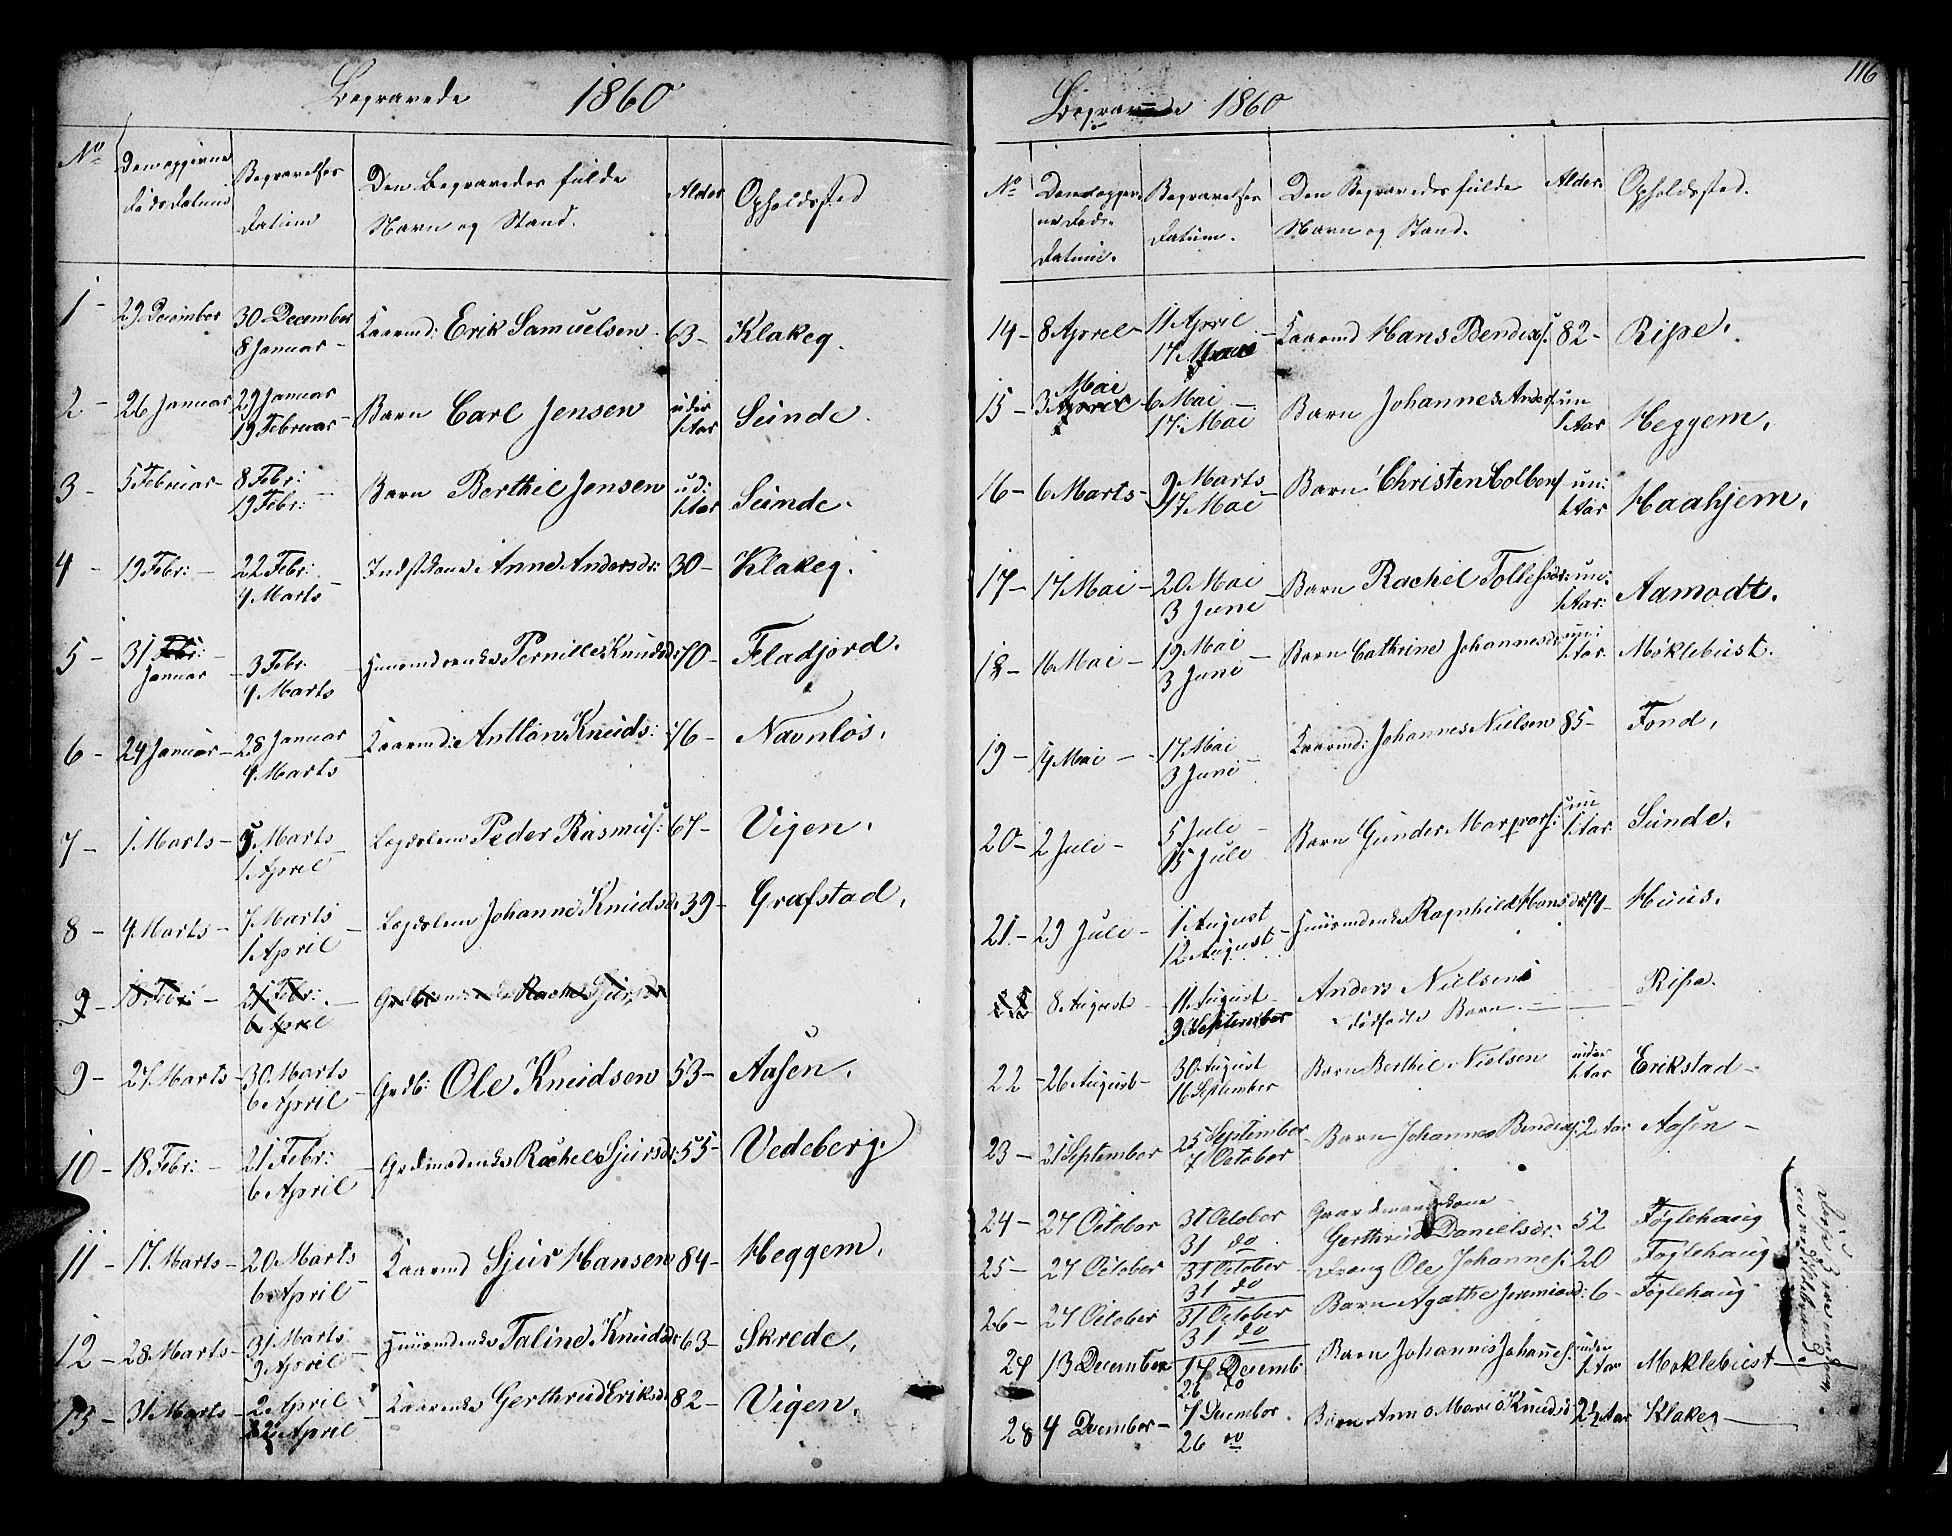 Begravede 1860
No
Den opgivne
Døds Datum
Begravelses
Datum
Den Begravedes fulde
Navn og Stand.
Alder
Opholdssted
1 - 29 December 30 December Kaarmd: Erik Samuelsen 63 - Klakeg.
8 Januar -
2 - 26 Januar 29 Januar Barn Carl Jensen under Sunde.
19 Februar - 1 Aar
3 - 5 Februar - 8 Febr: Barn Berthil Jensen und: Sunde.
19 Febr: - 1 Aar
4 - 19 Febr: - 22 Febr: Indst Kone Anne Andersdr: 30 - Klakeg.
4 Marts -
5 - 31 Febr: Januar - 3 Febr: Huusmdenke Pernille Knudsdr 70 - Fladjord.
4 Marts
6 - 24 Januar - 28 Januar Kaarmd: Anthon Knuds: 76 - Navnløs.
4 Marts -
7 - 1 Marts - 5 Marts Lægdslem Peder Rasmus: 67 - Vigen.
1 April
8 - 4 Marts - 7 Marts Lægdslem Johanne Knudsdr 39 - Grafstad.
1 April -
9 - 18 Febr: - 21 Febr: - Rachel Sjursdr
6 April
9 - 27 Marts - 30 Marts Grdb: Ole Knudsen 53 - Aasen.
6 April -
10 - 18 Febr: - 21 Febr: - Grdmdenke Rachel Sjursdr: 55 - Vedeberg.
6 April
11 - 17 Marts - 20 Marts Kaarmd Sjur Hansen 84 - Heggem.
6 April -
12 - 28 Marts - 31 Marts Huusmdenke Taline Knudsdr 63 - Skrede.
9 April -
13 - 31 Marts - 2 April - Kaarenke Gerthrud Eriksd. 82 - Vigen.
22 April -
116
Begravede 1860
No
Den opgiv-
ne Døds-
Datum.
Begravelses
Datum.
Den Begravedes fulde
Navn og Stand.
Alder.
Opholdssted.
14 - 8 April - 11 April Kaarmd Hans Bendixs. 82 - Ripe.
17 Mai
15 - 3 April Mai 6 Mai - Barn Johannes Anders. un Heggem.
17 Mai 1 Aar
16 - 6 Marts - 9 Marts Barn Christen Colbens. un: Haahjem.
17 Mai - 1 Aar
17 - 17 Mai - 20 Mai Barn Rachel Tollefsdr: un: Aamodt.
3 Juni - 1 Aar:
18 - 16 Mai - 19 Mai Barn Cathrine Johannesdr un: Møklebust.
3 Juni - 1 Aar
19 - 14 Mai - 17 Mai Kaarmd: Johannes Nielsen 85 - Fond.
3 Juni -
20 - 2 Juli - 5 Juli - Barn Gunder un Sunde.
15 Juli 1 Aar
21 - 29 Juli - 1 August Huusmdenke Ragnhild Hansdr Huus.
12 August -
8 August - 11 August - Anders Nielsens Ripe.
9 September dødfødte Barn.
22 - 26 August - 30 August Barn Berthil Nielsen under Erikstad -
16 September 1 Aar
23 - 21 September 25 September Barn Johannes Bendixs: 2 Aar Aasen -
7 October
24 - 27 October 31 October Gaardmandskone 52 Føglehaug
31 do Gerthrud Danielsdr:
25 - 27 October 31 October Dreng Ole Johannes: 20 Føglehaug
31 do
26 - 27 October 31 October Barn Agathe Jeremiasd: 6 - Føglehaug
31 do
27 13 December 17 Decemb Barn Johannes Johannes: under Møklebust -
26 do 1 Aar
28 4 December - 7 December. Barn Anne Marie Knudsd 2½ Aar Klakeg -
26 do